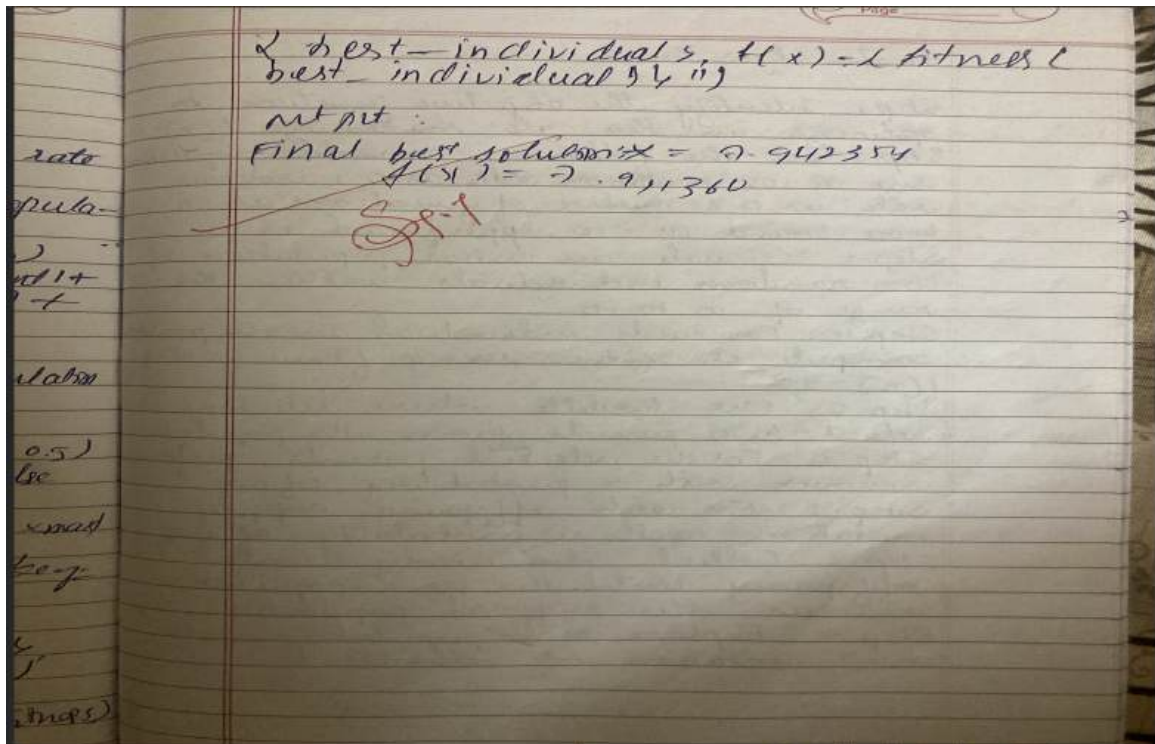 Page
{ best_individual }, f(x) = { fitness (
best_individual ) } ")
output :
Final best solution: x = 7.942354
f(x) = 7.911360
rate
popula-
)
ulation
0.5)
lse
xmax)
key:
fitness)